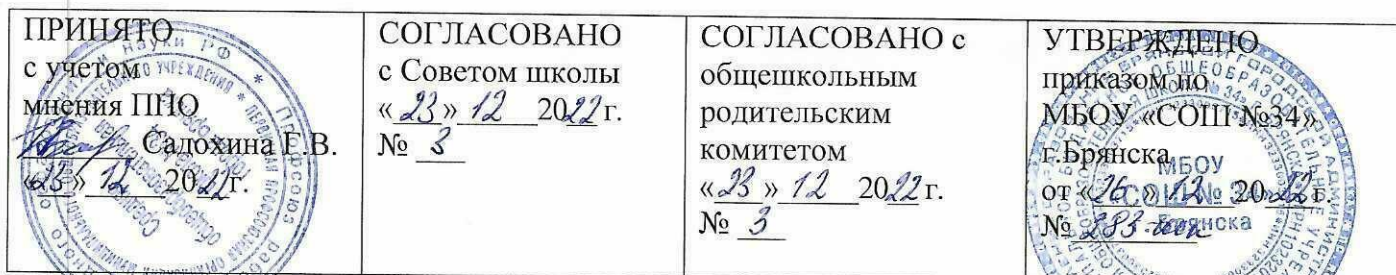 ПРИНЯТО
с учетом
мнения ППО
Садохина Г.В.
«23» 12 2022г.
СОГЛАСОВАНО
с Советом школы
«23» 12 2022 г.
№ 3
СОГЛАСОВАНО с
общешкольным
родительским
комитетом
«23» 12 2022 г.
№ 3
УТВЕРЖДЕНО
приказом по
МБОУ «СОШ №34»
г.Брянска
от «26» 12 2022г.
№ 283
МБОУ
СОШ № 34
г.Брянска